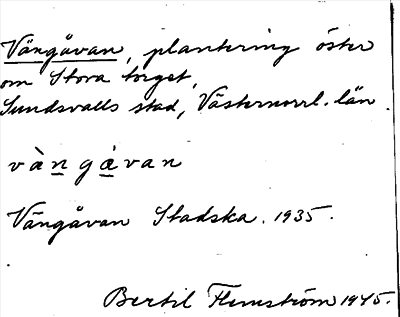 Vängåvan, plantering öster
om Stora torget,
Sundsvalls stad, Västernorrl. län.
vàn gåvan
Vängåvan Stadska. 1935.
Bertil Flemström 1945.